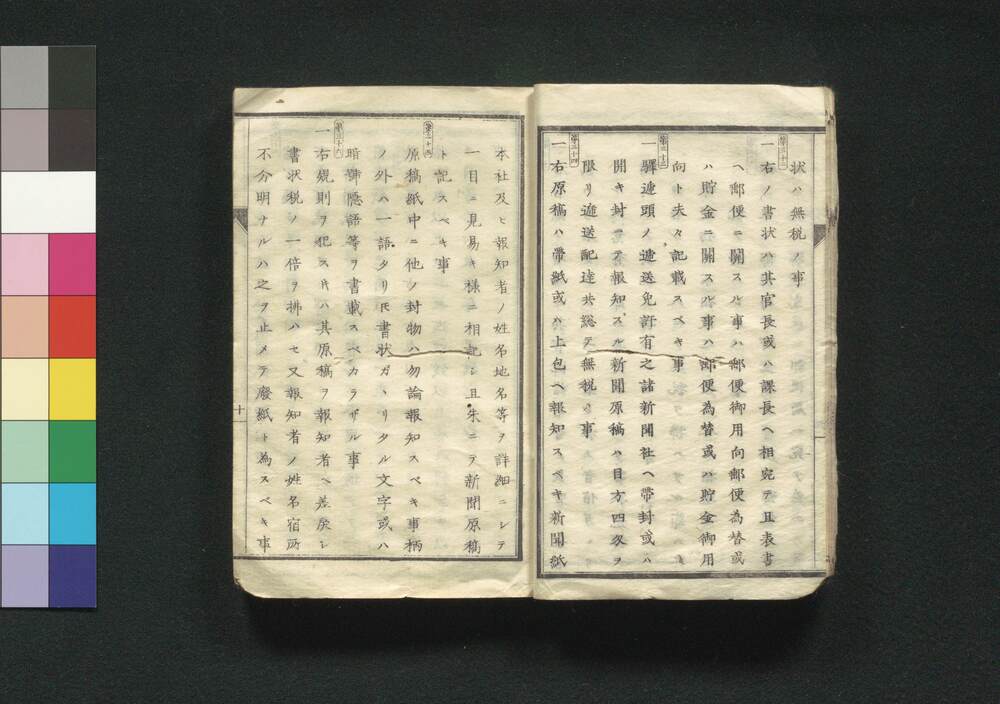 状ハ無税ノ事
第三十二
一右ノ書状ハ其官長或ハ課長ヘ相宛テ且表書
ヘ郵便ニ關スル事ハ郵便御用向郵便為替或
ハ貯金ニ關スル事ハ郵便為替或ハ貯金御用
向ト夫々記載スベキ事
第三十三
一驛逓頭ノ逓送免許有之諸新聞社ヘ帶封或ハ
開キ封ニテ報知スル新聞原稿ハ目方四匁ヲ
限リ逓送配達共總テ無税ノ事
第三十四
一右原稿ハ帶紙或ハ上包ヘ報知スベキ新聞紙
本社及ヒ報知者ノ姓名地名等ヲ詳細ニシテ
一目ニ見易キ様ニ相記シ且朱ニテ新聞原稿
ト記スベキ事
第三十五
原稿紙中ニ他ノ封物ハ勿論報知スベキ事柄
ノ外ハ一語タリ𪜈書状ガヽリタル文字或ハ
暗號隠語等ヲ書載スベカラザル事
第三十六
一右規則ヲ犯ス𪜈ハ其原稿ヲ報知者ヘ差戻シ
書状税ノ一倍ヲ拂ハセ又報知者ノ姓名宿所
不分明ナルハ之ヲ止メテ廢紙ト為スベキ事
十